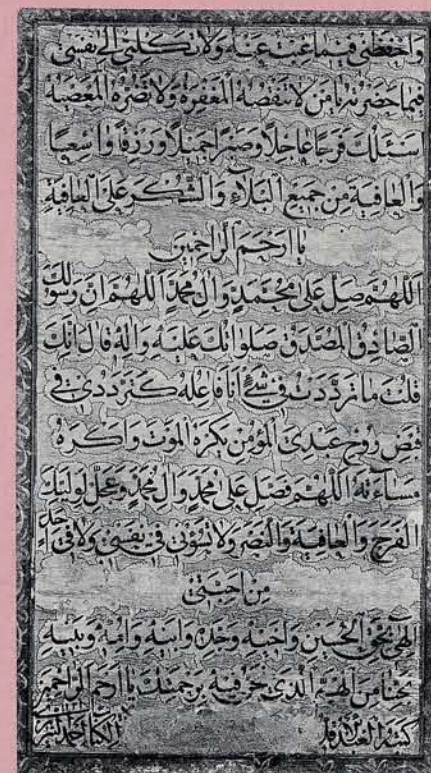 وَاحْفَظْنِي فِيمَا غِبْتُ عَنْهُ وَلَا تَكِلْنِي اِلَى نَفْسِي
فِيمَا حَضَرْتُهُ يَا مَنْ لَا تَنْقُصُهُ الْمَغْفِرَةُ وَلَا تَضُرُّهُ الْمَعْصِيَةُ
اَسْئَلُكَ فَرَجًا عَاجِلًا وَصَبْرًا جَمِيلًا وَرِزْقًا وَاسِعًا
وَالْعَافِيَةَ مِنْ جَمِيعِ الْبَلَاءِ وَالشُّكْرَ عَلَى الْعَافِيَةِ
يَا اَرْحَمَ الرَّاحِمِينَ
اَللّٰهُمَّ صَلِّ عَلَى مُحَمَّدٍ وَآلِ مُحَمَّدٍ اَللّٰهُمَّ اِنَّ رَسُولَكَ
الصَّادِقَ الْمُصَدَّقَ صَلَوَاتُكَ عَلَيْهِ وَآلِهِ قَالَ اِنَّكَ
قُلْتَ مَا تَرَدَّدْتُ فِي شَيْءٍ اَنَا فَاعِلُهُ كَتَرَدُّدِي فِي
قَبْضِ رُوحِ عَبْدِيَ الْمُؤْمِنِ يَكْرَهُ الْمَوْتَ وَاَكْرَهُ
مَسَاءَتَهُ اَللّٰهُمَّ فَصَلِّ عَلَى مُحَمَّدٍ وَآلِ مُحَمَّدٍ وَعَجِّلْ لِوَلِيِّكَ
الْفَرَجَ وَالْعَافِيَةَ وَالنَّصْرَ وَلَا تَسُؤْنِي فِي نَفْسِي وَلَا فِي اَحَدٍ
مِنْ اَحِبَّتِي
اِلٰهِي بِحَقِّ الْحُسَيْنِ وَاَخِيهِ وَجَدِّهِ وَاَبِيهِ وَاُمِّهِ وَبَنِيهِ
نَجِّنَا مِنَ الْهَمِّ الَّذِي نَحْنُ فِيهِ بِرَحْمَتِكَ يَا اَرْحَمَ الرَّاحِمِينَ